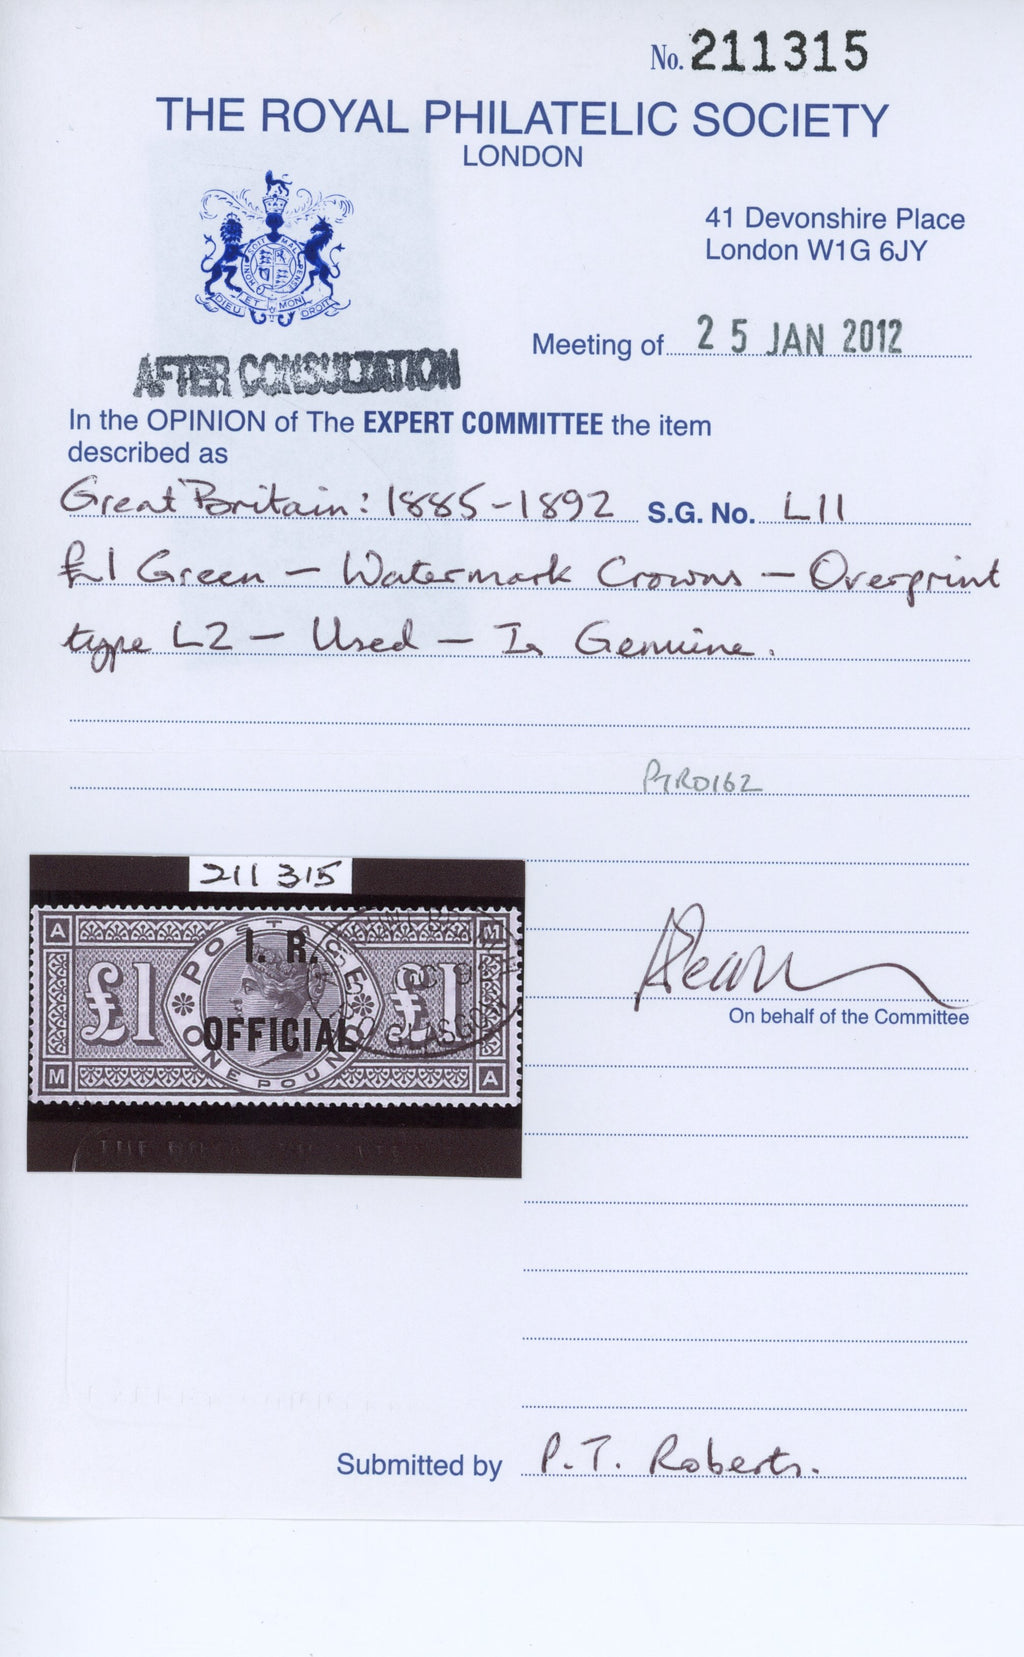 No. 211315
THE ROYAL PHILATELIC SOCIETY
LONDON
41 Devonshire Place
London W1G 6JY
SOIT MAL PENSE
DIEU ET MON DROIT
Meeting of 25 JAN 2012
AFTER CONSULTATION
In the OPINION of The EXPERT COMMITTEE the item
described as
Great Britain: 1885-1892 S.G. No. L11
£1 Green - Watermark Crowns - Overprint
type L2 - Used - Is Genuine.
PTR0162
211 315
A M
POSTAGE
I. R.
£1 £1
OFFICIAL
GLASGOW
ONE POUND
M A
On behalf of the Committee
Submitted by P.T. Roberts.